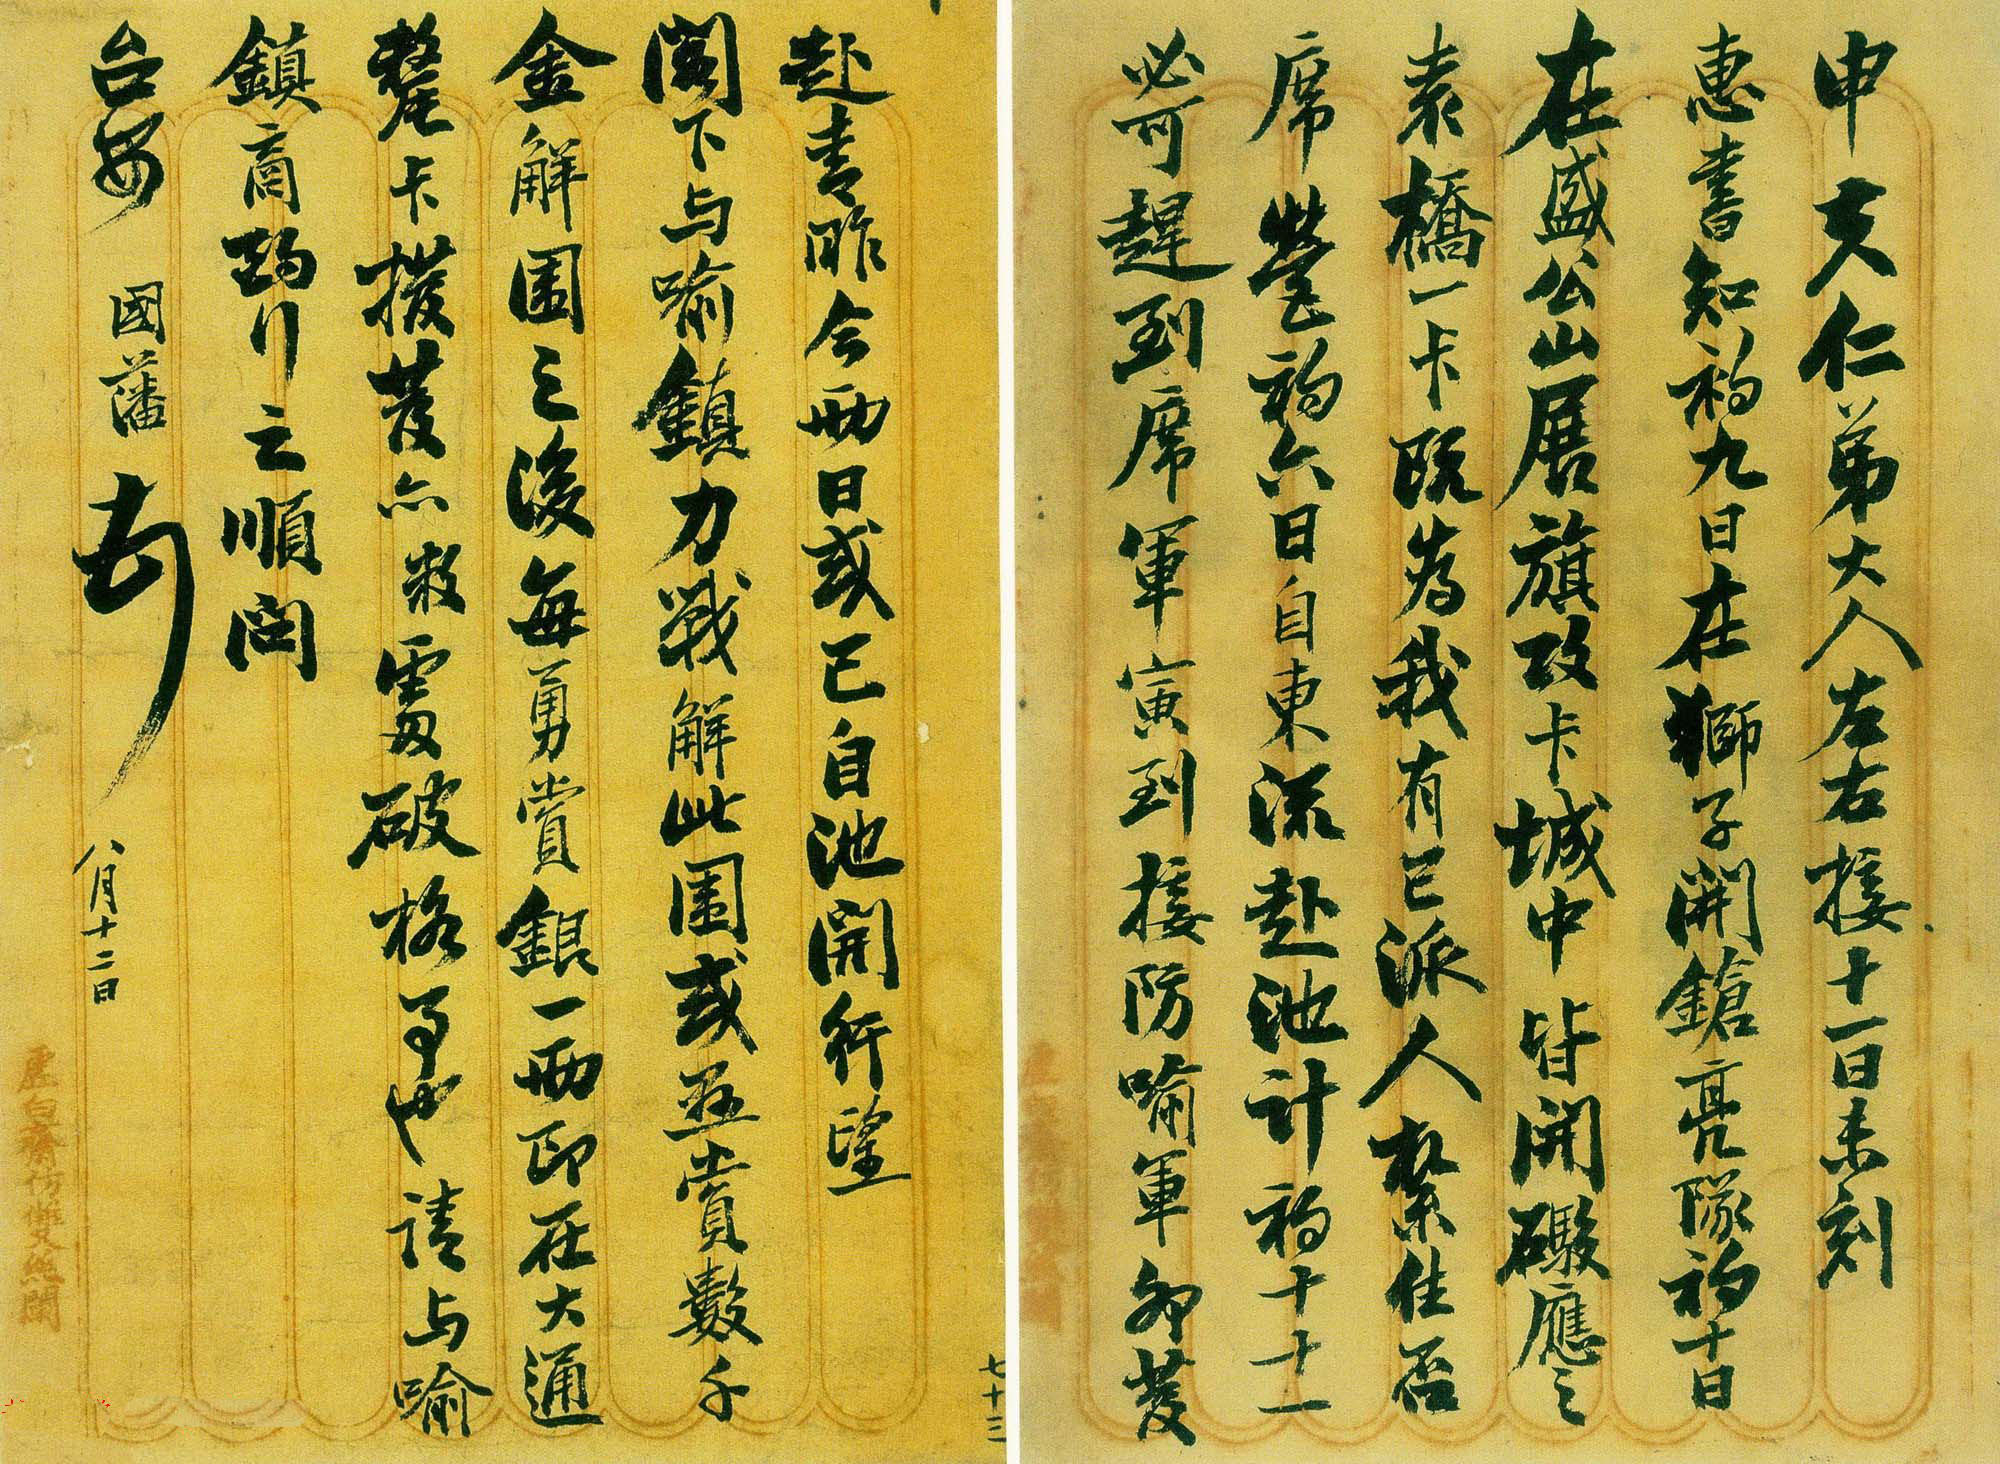 申夫仁弟大人左右接十一日未刻
惠書知初九日在獅子開鎗亮隊初十日
在盛公山展旗攻卡城中皆開礮應之
袁橋一卡既為我有已派人紮住否
席營初六日自東流赴池計初十十一
必可趕到席軍寅到接防喻軍卯發
赴青昨今兩日或已自池開行望
閣下与喻鎮力戰解此圍或懸賞數千
金解圍之後每勇賞銀一兩即在大通
釐卡撥發亦救處破格事也請与喻
鎮商酌行之順問
台安 國藩 頓 八月十二日
七十三
虛白齋仿